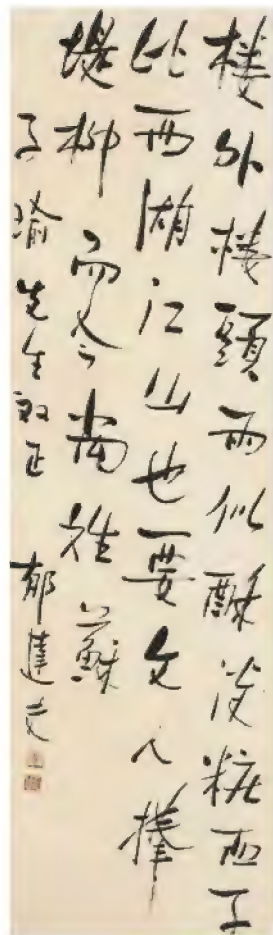 楼外楼頭雨似酥淡粧西子
比西湖江山也要文人捧
堤柳而今尚姓蘇
子瑜先生教正 郁達夫